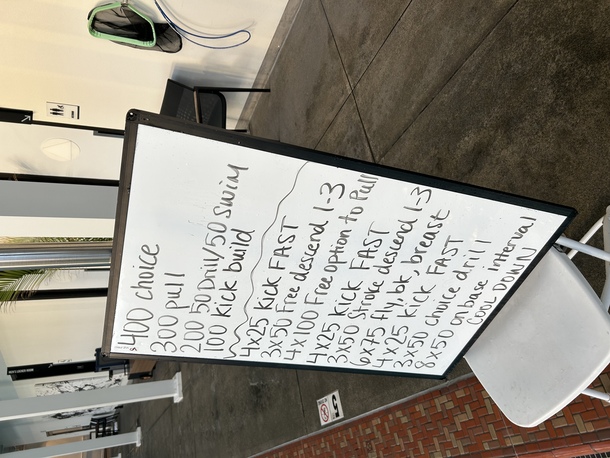 400 choice
300 pull
200 50 Drill/50 Swim
100 kick build
4x25 kick FAST
3x50 Free descend 1-3
4x100 Free option to Pull
4x25 kick FAST
3x50 Stroke descend 1-3
6x75 fly, bk, breast
4x25 kick FAST
3x50 choice drill
8x50 on base interval
COOL DOWN